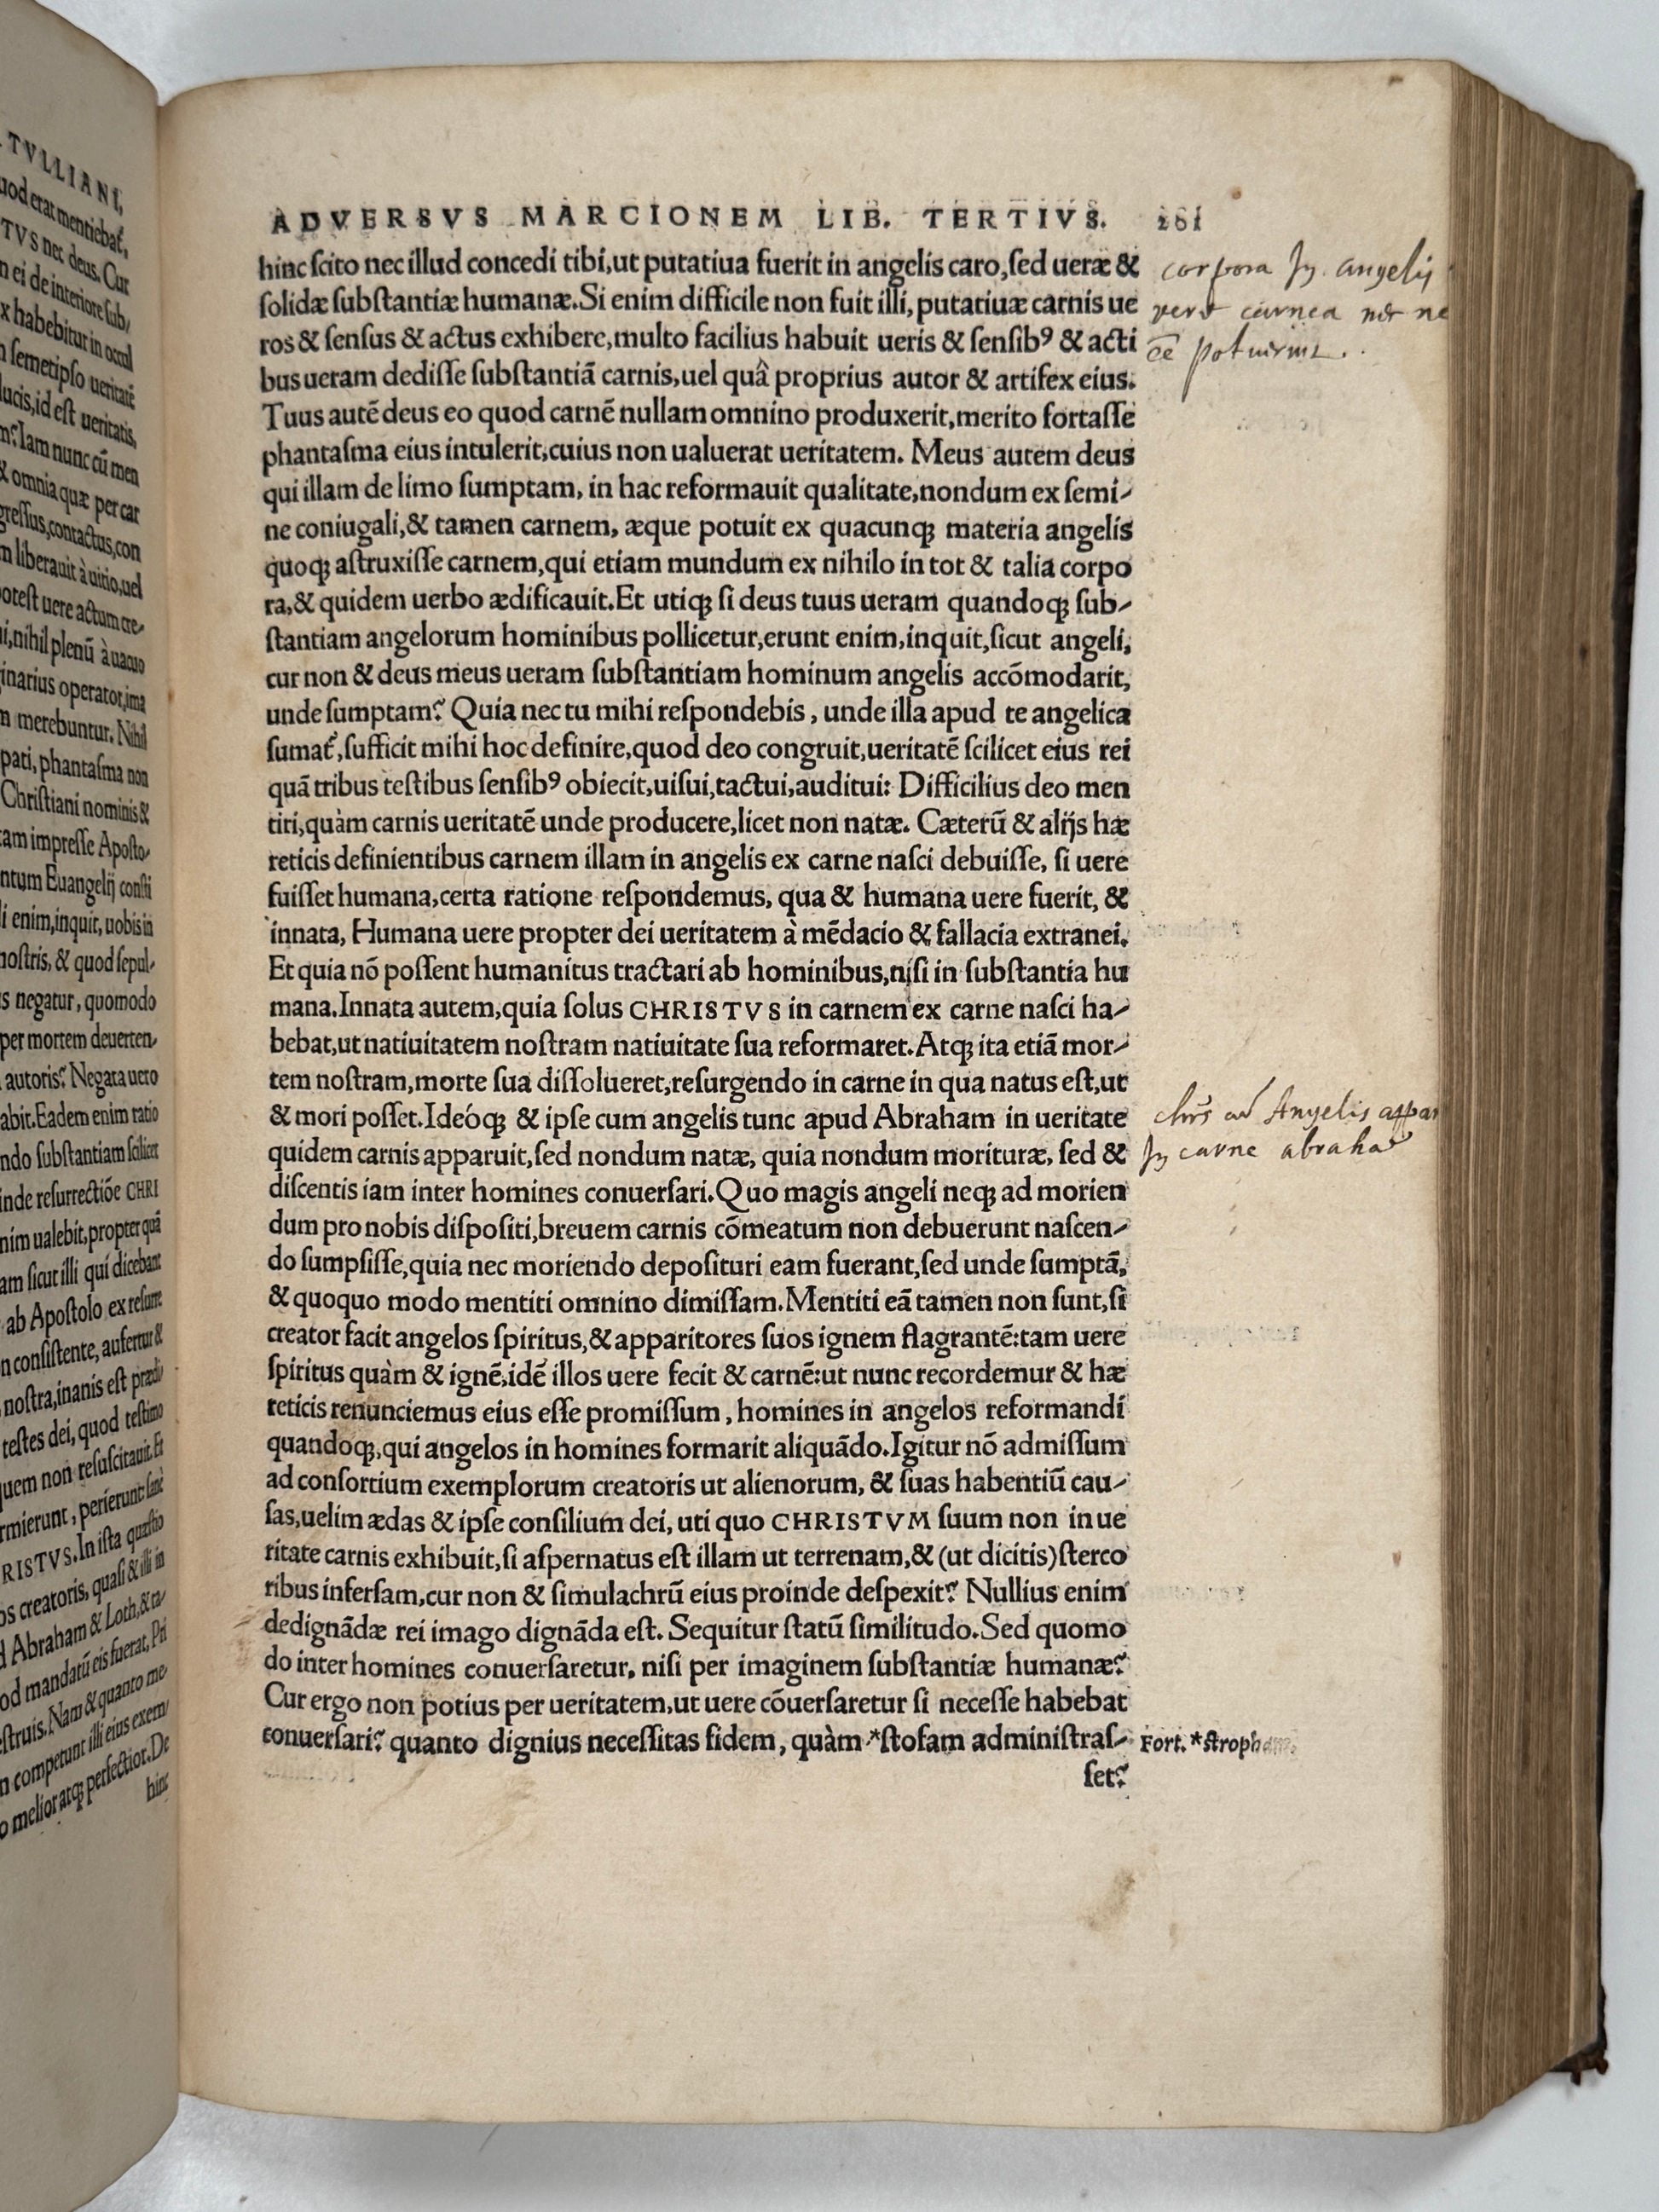 TVLLIANI,
uod erat mentiebat᷑,
TVS nec deus. Cur
n ei de interiore sub/
x habebitur in occul
n semetipso ueritatē
lucis, id est ueritatis,
m? Iam nunc cū men
& omnia quæ per car
gressus, contactus, con
m liberauit à uitio, uel
otest uere actum cre/
i, nihil plenū à uacuo
inarius operator, ima
n merebuntur. Nihil
pati, phantasma non
Christiani nominis &
tam impresse Aposto/
ntum Euangelij consti
i enim, inquit, uobis in
nostris, & quod sepul/
s negatur, quomodo
per mortem deuerten/
autoris? Negata uero
abit. Eadem enim ratio
ndo substantiam scilicet
inde resurrectiōe CHRI
nim ualebit, propter quā
am sicut illi qui dicebant
ab Apostolo ex resurre
n consistente, aufertur &
nostra, inanis est prædi
testes dei, quod testimo
uem non resuscitauit. Et
rmierunt, perierunt sanè
RISTVS. In ista quæstio
os creatoris, quasi & illi in
d Abraham & Loth, & tra/
od mandatū eis fuerat, Pri
struis. Nam & quanto me/
n competunt illi eius exem/
o melior atq; perfectior. De
hinc
ADVERSVS MARCIONEM LIB. TERTIVS. 261
hinc scito nec illud concedi tibi, ut putatiua fuerit in angelis caro, sed ueræ &
solidæ substantiæ humanæ. Si enim difficile non fuit illi, putatiuæ carnis ue
ros & sensus & actus exhibere, multo facilius habuit ueris & sensibꝰ & acti
bus ueram dedisse substantiā carnis, uel quā proprius autor & artifex eius.
Tuus autē deus eo quod carnē nullam omnino produxerit, merito fortasse
phantasma eius intulerit, cuius non ualuerat ueritatem. Meus autem deus
qui illam de limo sumptam, in hac reformauit qualitate, nondum ex semi/
ne coniugali, & tamen carnem, æque potuit ex quacunq; materia angelis
quoq; astruxisse carnem, qui etiam mundum ex nihilo in tot & talia corpo
ra, & quidem uerbo ædificauit. Et utiq; si deus tuus ueram quandoq; sub/
stantiam angelorum hominibus pollicetur, erunt enim, inquit, sicut angeli,
cur non & deus meus ueram substantiam hominum angelis accōmodarit,
unde sumptam? Quia nec tu mihi respondebis, unde illa apud te angelica
sumat᷑, sufficit mihi hoc definire, quod deo congruit, ueritatē scilicet eius rei
quā tribus testibus sensibꝰ obiecit, uisui, tactui, auditui: Difficilius deo men
tiri, quàm carnis ueritatē unde producere, licet non natæ. Cæterū & alijs hæ
reticis definientibus carnem illam in angelis ex carne nasci debuisse, si uere
fuisset humana, certa ratione respondemus, qua & humana uere fuerit, &
innata, Humana uere propter dei ueritatem à mēdacio & fallacia extranei.
Et quia nō possent humanitus tractari ab hominibus, nisi in substantia hu
mana. Innata autem, quia solus CHRISTVS in carnem ex carne nasci ha/
bebat, ut natiuitatem nostram natiuitate sua reformaret. Atq; ita etiā mor/
tem nostram, morte sua dissolueret, resurgendo in carne in qua natus est, ut
& mori posset. Ideóq; & ipse cum angelis tunc apud Abraham in ueritate
quidem carnis apparuit, sed nondum natæ, quia nondum morituræ, sed &
discentis iam inter homines conuersari. Quo magis angeli neq; ad morien
dum pro nobis dispositi, breuem carnis cōmeatum non debuerunt nascen/
do sumpsisse, quia nec moriendo deposituri eam fuerant, sed unde sumptā,
& quoquo modo mentiti omnino dimissam. Mentiti eā tamen non sunt, si
creator facit angelos spiritus, & apparitores suos ignem flagrantē: tam uere
spiritus quàm & ignē, idē illos uere fecit & carnē: ut nunc recordemur & hæ
reticis renunciemus eius esse promissum, homines in angelos reformandi
quandoq;, qui angelos in homines formarit aliquādo. Igitur nō admissum
ad consortium exemplorum creatoris ut alienorum, & suas habentiū cau/
sas, uelim ædas & ipse consilium dei, uti quo CHRISTVM suum non in ue
ritate carnis exhibuit, si aspernatus est illam ut terrenam, & (ut dicitis) sterco
ribus infersam, cur non & simulachrū eius proinde despexit? Nullius enim
dedignādæ rei imago dignāda est. Sequitur statū similitudo. Sed quomo
do inter homines conuersaretur, nisi per imaginem substantiæ humanæ?
Cur ergo non potius per ueritatem, ut uere cōuersaretur si necesse habebat
conuersari? quanto dignius necessitas fidem, quàm *stofam administras/
set?
corpora In angelis
vera carnea non ne
potuerint.
Angelis appar
In carne abraha
Fort. *stropham.